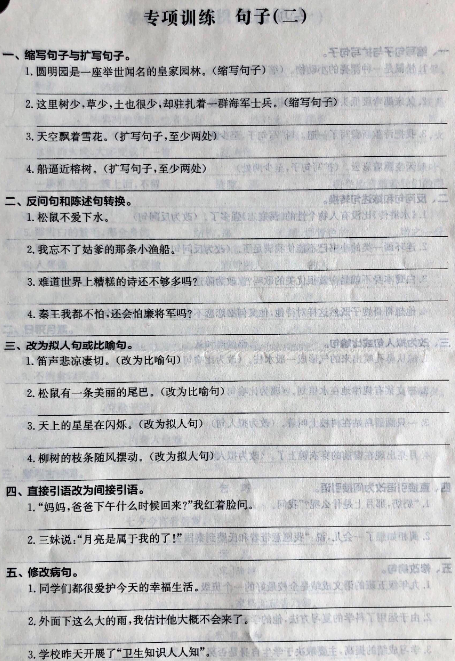 专项训练 句子(二)
一、缩写句子与扩写句子。
1.圆明园是一座举世闻名的皇家园林。(缩写句子)
2.这里树少,草少,土也很少,却驻扎着一群海军士兵。(缩写句子)
3.天空飘着雪花。(扩写句子,至少两处)
4.船逼近榕树。(扩写句子,至少两处)
二、反问句和陈述句转换。
1.松鼠不爱下水。
2.我忘不了姑爹的那条小渔船。
3.难道世界上糟糕的诗还不够多吗?
4.秦王我都不怕,还会怕廉将军吗?
三、改为拟人句或比喻句。
1.笛声悲凉凄切。(改为比喻句)
2.松鼠有一条美丽的尾巴。(改为比喻句)
3.天上的星星在闪烁。(改为拟人句)
4.柳树的枝条随风摆动。(改为拟人句)
四、直接引语改为间接引语。
1.“妈妈,爸爸下午什么时候回来?”我红着脸问。
2.三妹说:“月亮是属于我的了!”
五、修改病句。
1.同学们都很爱护今天的幸福生活。
2.外面下这么大的雨,我估计他大概不会来了。
3.学校昨天开展了“卫生知识人人知”。